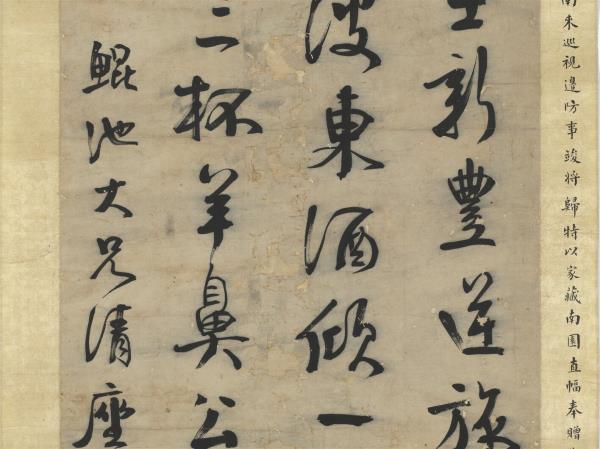 南來巡視邊防事竣將歸特以家藏南園直幅奉贈
新豐逆旅
東酒傾一
三杯羊鼻公
鯤池大兄清座